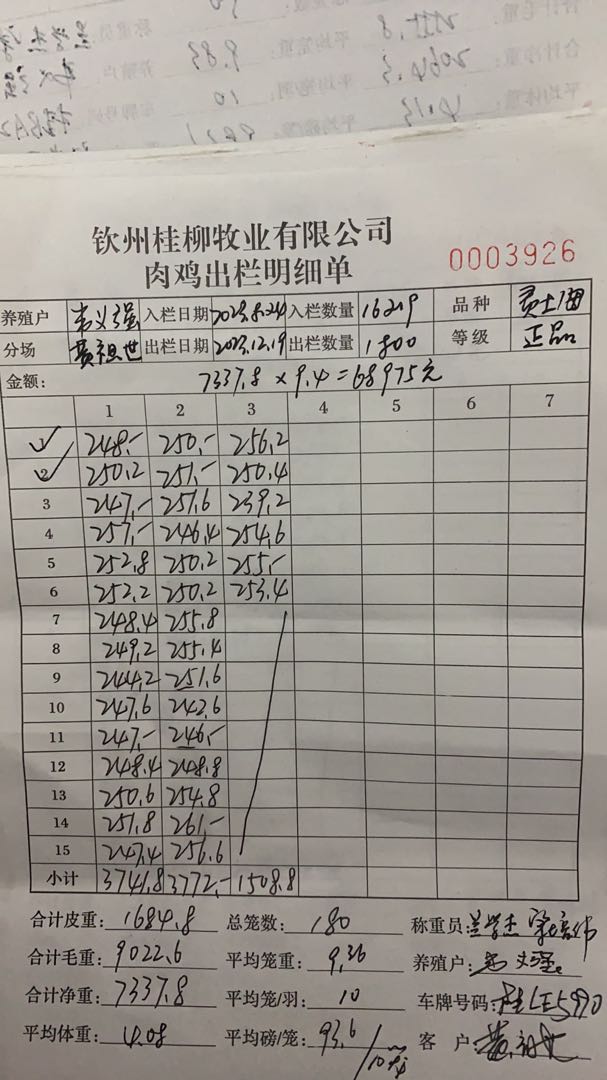 钦州桂柳牧业有限公司
肉鸡出栏明细单
0003926
养殖户 韦义强 入栏日期 2023.8.24 入栏数量 16219 品种
分场 黄祖世 出栏日期 2023.12.19 出栏数量 1800 等级 正品
金额: 7337.8 × 9.4 = 68975元
1 2 3 4 5 6 7
1 248.- 250.- 256.2
2 250.2 251.- 250.4
3 247.- 251.6 239.2
4 257.- 246.4 254.6
5 252.8 250.2 255.-
6 252.2 250.2 253.4
7 248.4 255.8
8 249.2 255.4
9 244.2 251.6
10 247.6 242.6
11 247.- 246.-
12 248.4 248.8
13 250.6 254.8
14 251.8 261.-
15 247.4 256.6
小计 3741.8 3772.- 1508.8
合计皮重: 1684.8 总笼数: 180 称重员:
合计毛重: 9022.6 平均笼重: 9.36 养殖户: 韦义强
合计净重: 7337.8 平均笼/羽: 10 车牌号码: 桂LE5990
平均体重: 4.08 平均磅/笼: 93.6 客户: